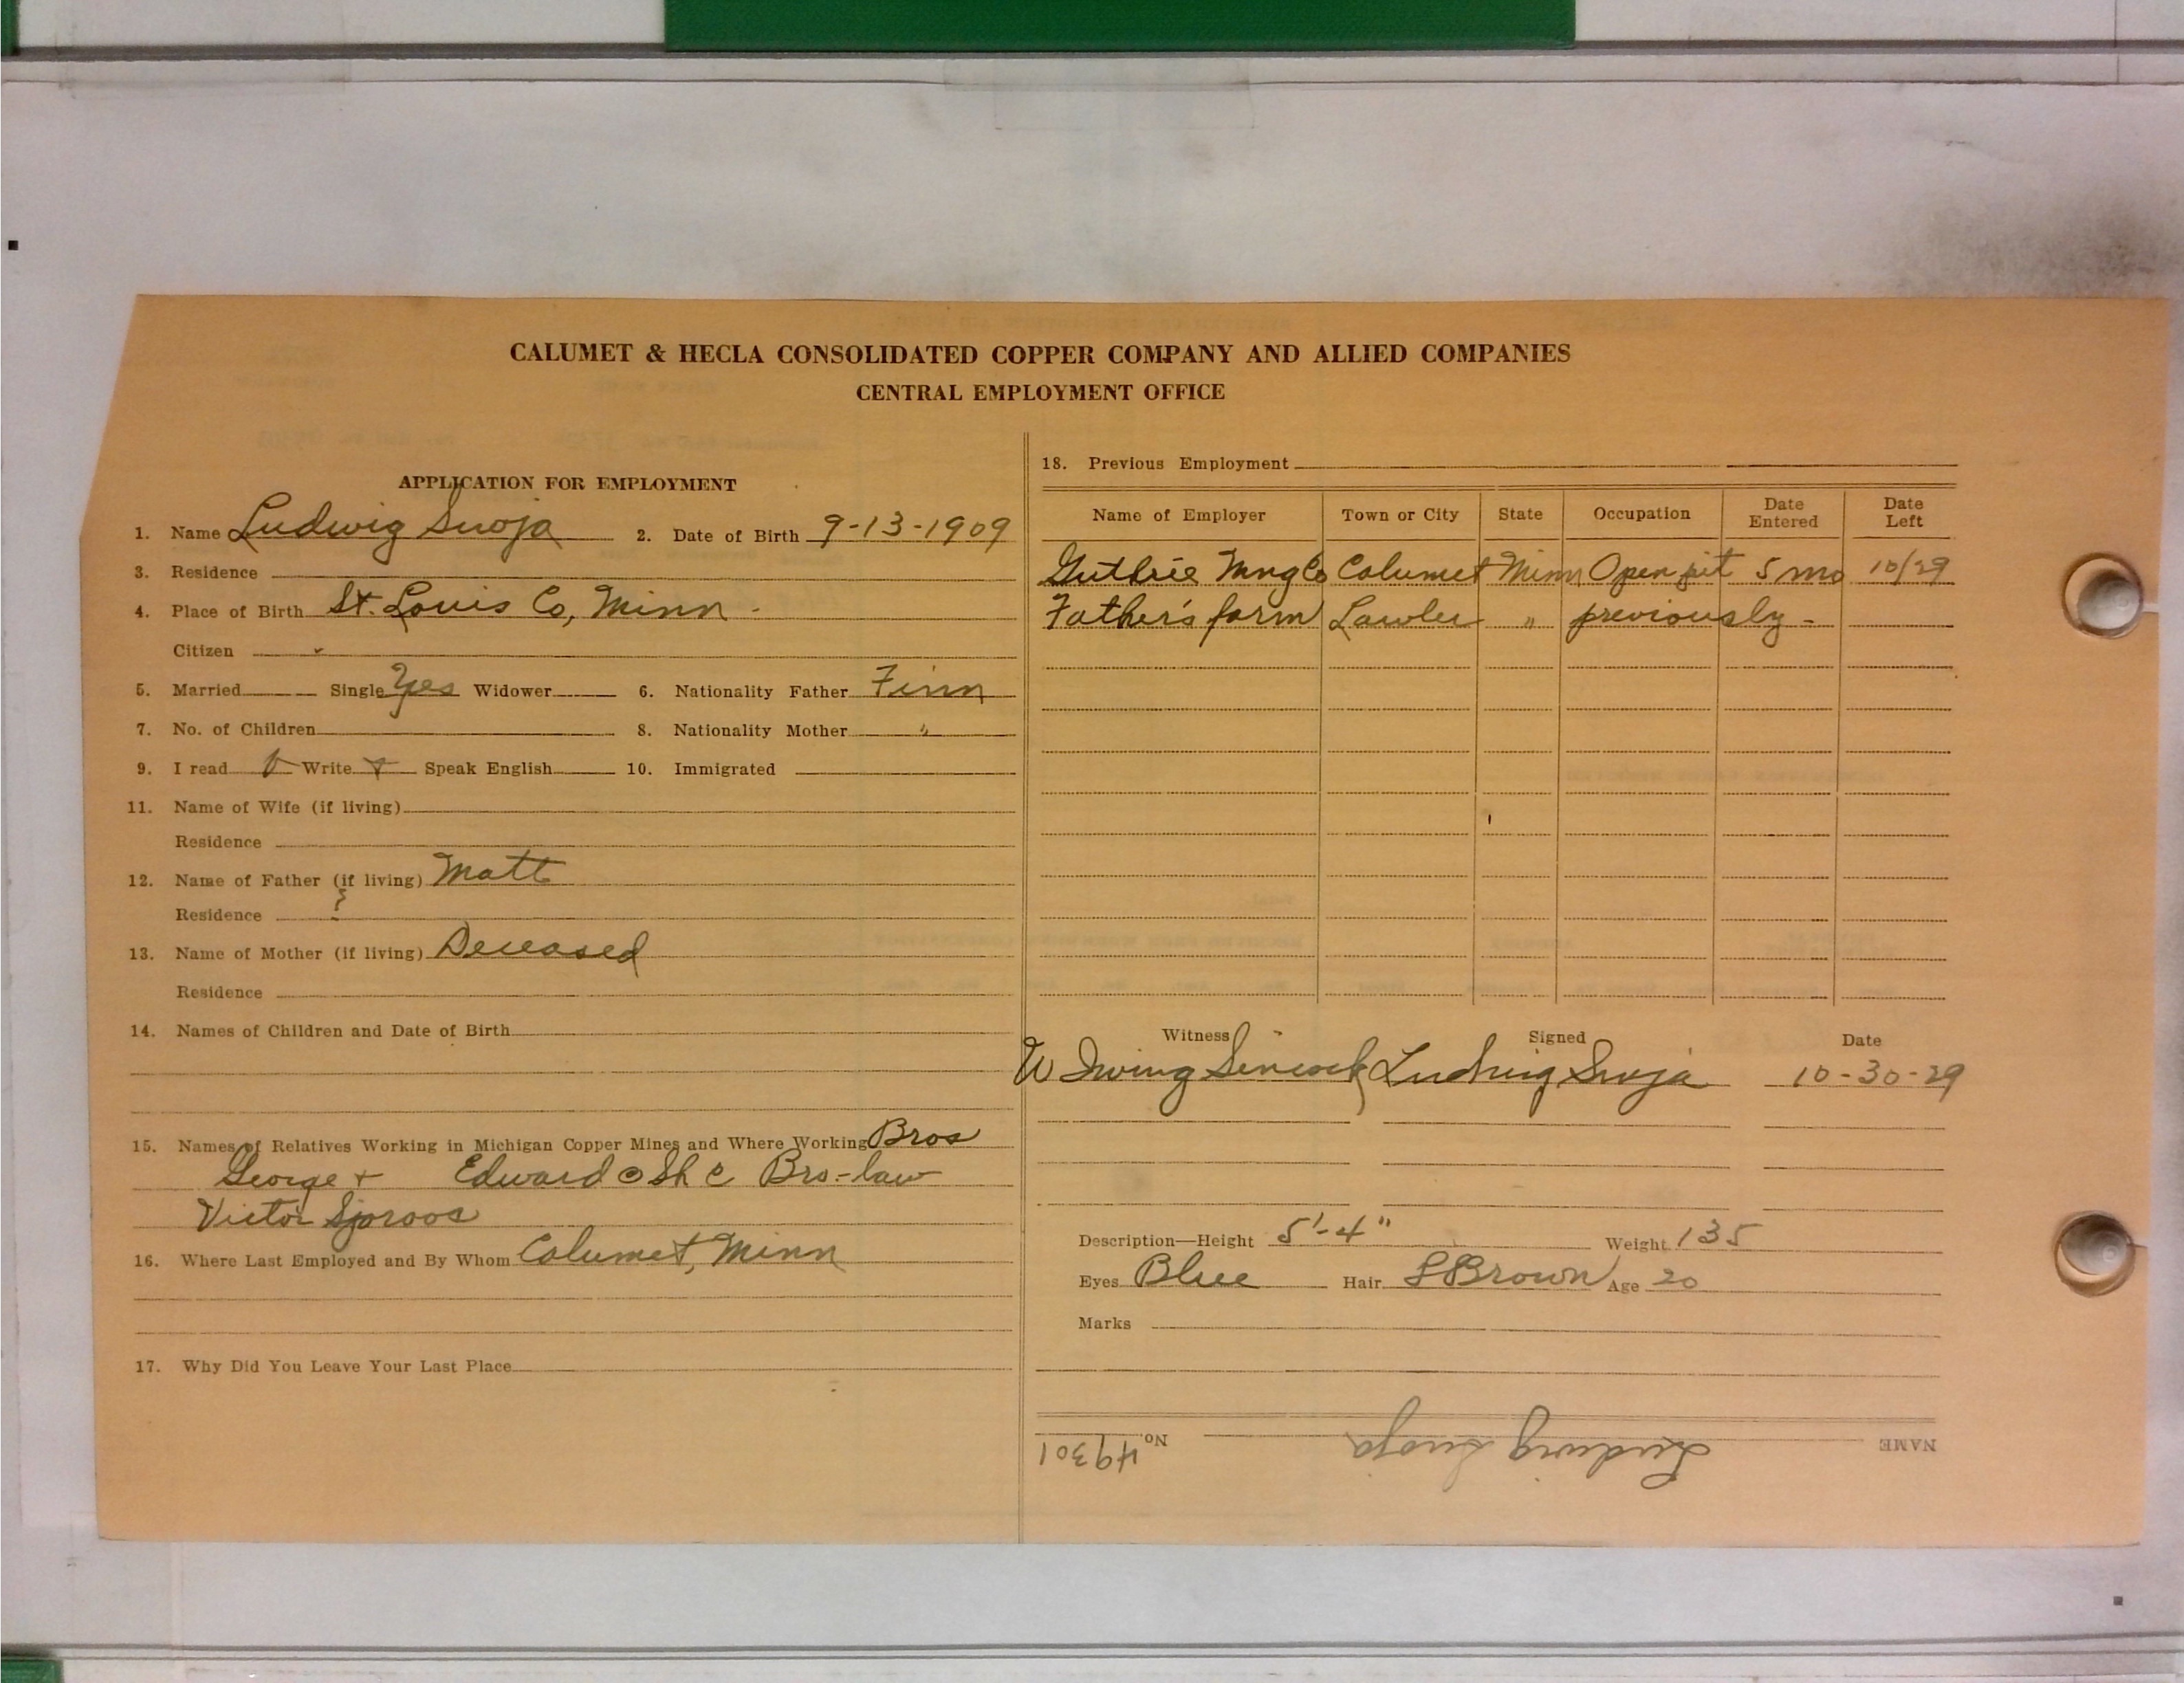 CALUMET & HECLA CONSOLIDATED COPPER COMPANY AND ALLIED COMPANIES
CENTRAL EMPLOYMENT OFFICE
APPLICATION FOR EMPLOYMENT
1. Name Ludwig Suoja 2. Date of Birth 9-13-1909
3. Residence
4. Place of Birth St. Louis Co, Minn -
Citizen
5. Married Single Yes Widower 6. Nationality Father Finn
7. No. of Children 8. Nationality Mother "
9. I read Write Speak English 10. Immigrated
11. Name of Wife (if living)
Residence
12. Name of Father (if living) Matt
Residence
13. Name of Mother (if living) Deceased
Residence
14. Names of Children and Date of Birth
15. Names of Relatives Working in Michigan Copper Mines and Where Working Bros
George + Edward @ Sh C Bro-law
Victor Sjoroos
16. Where Last Employed and By Whom Calumet, Minn
17. Why Did You Leave Your Last Place
18. Previous Employment
Name of Employer Town or City State Occupation Date Entered Date Left
Guthrie Mng Co Calumet Minn Open pit 5 mo 10/29
Father's farm Lawler " previously -
Witness Signed Date
W Irving Sincock Ludwig Suoja 10-30-29
Description—Height 5'-4" Weight 135
Eyes Blue Hair L Brown Age 20
Marks
NAME Ludwig Suoja No. 49301